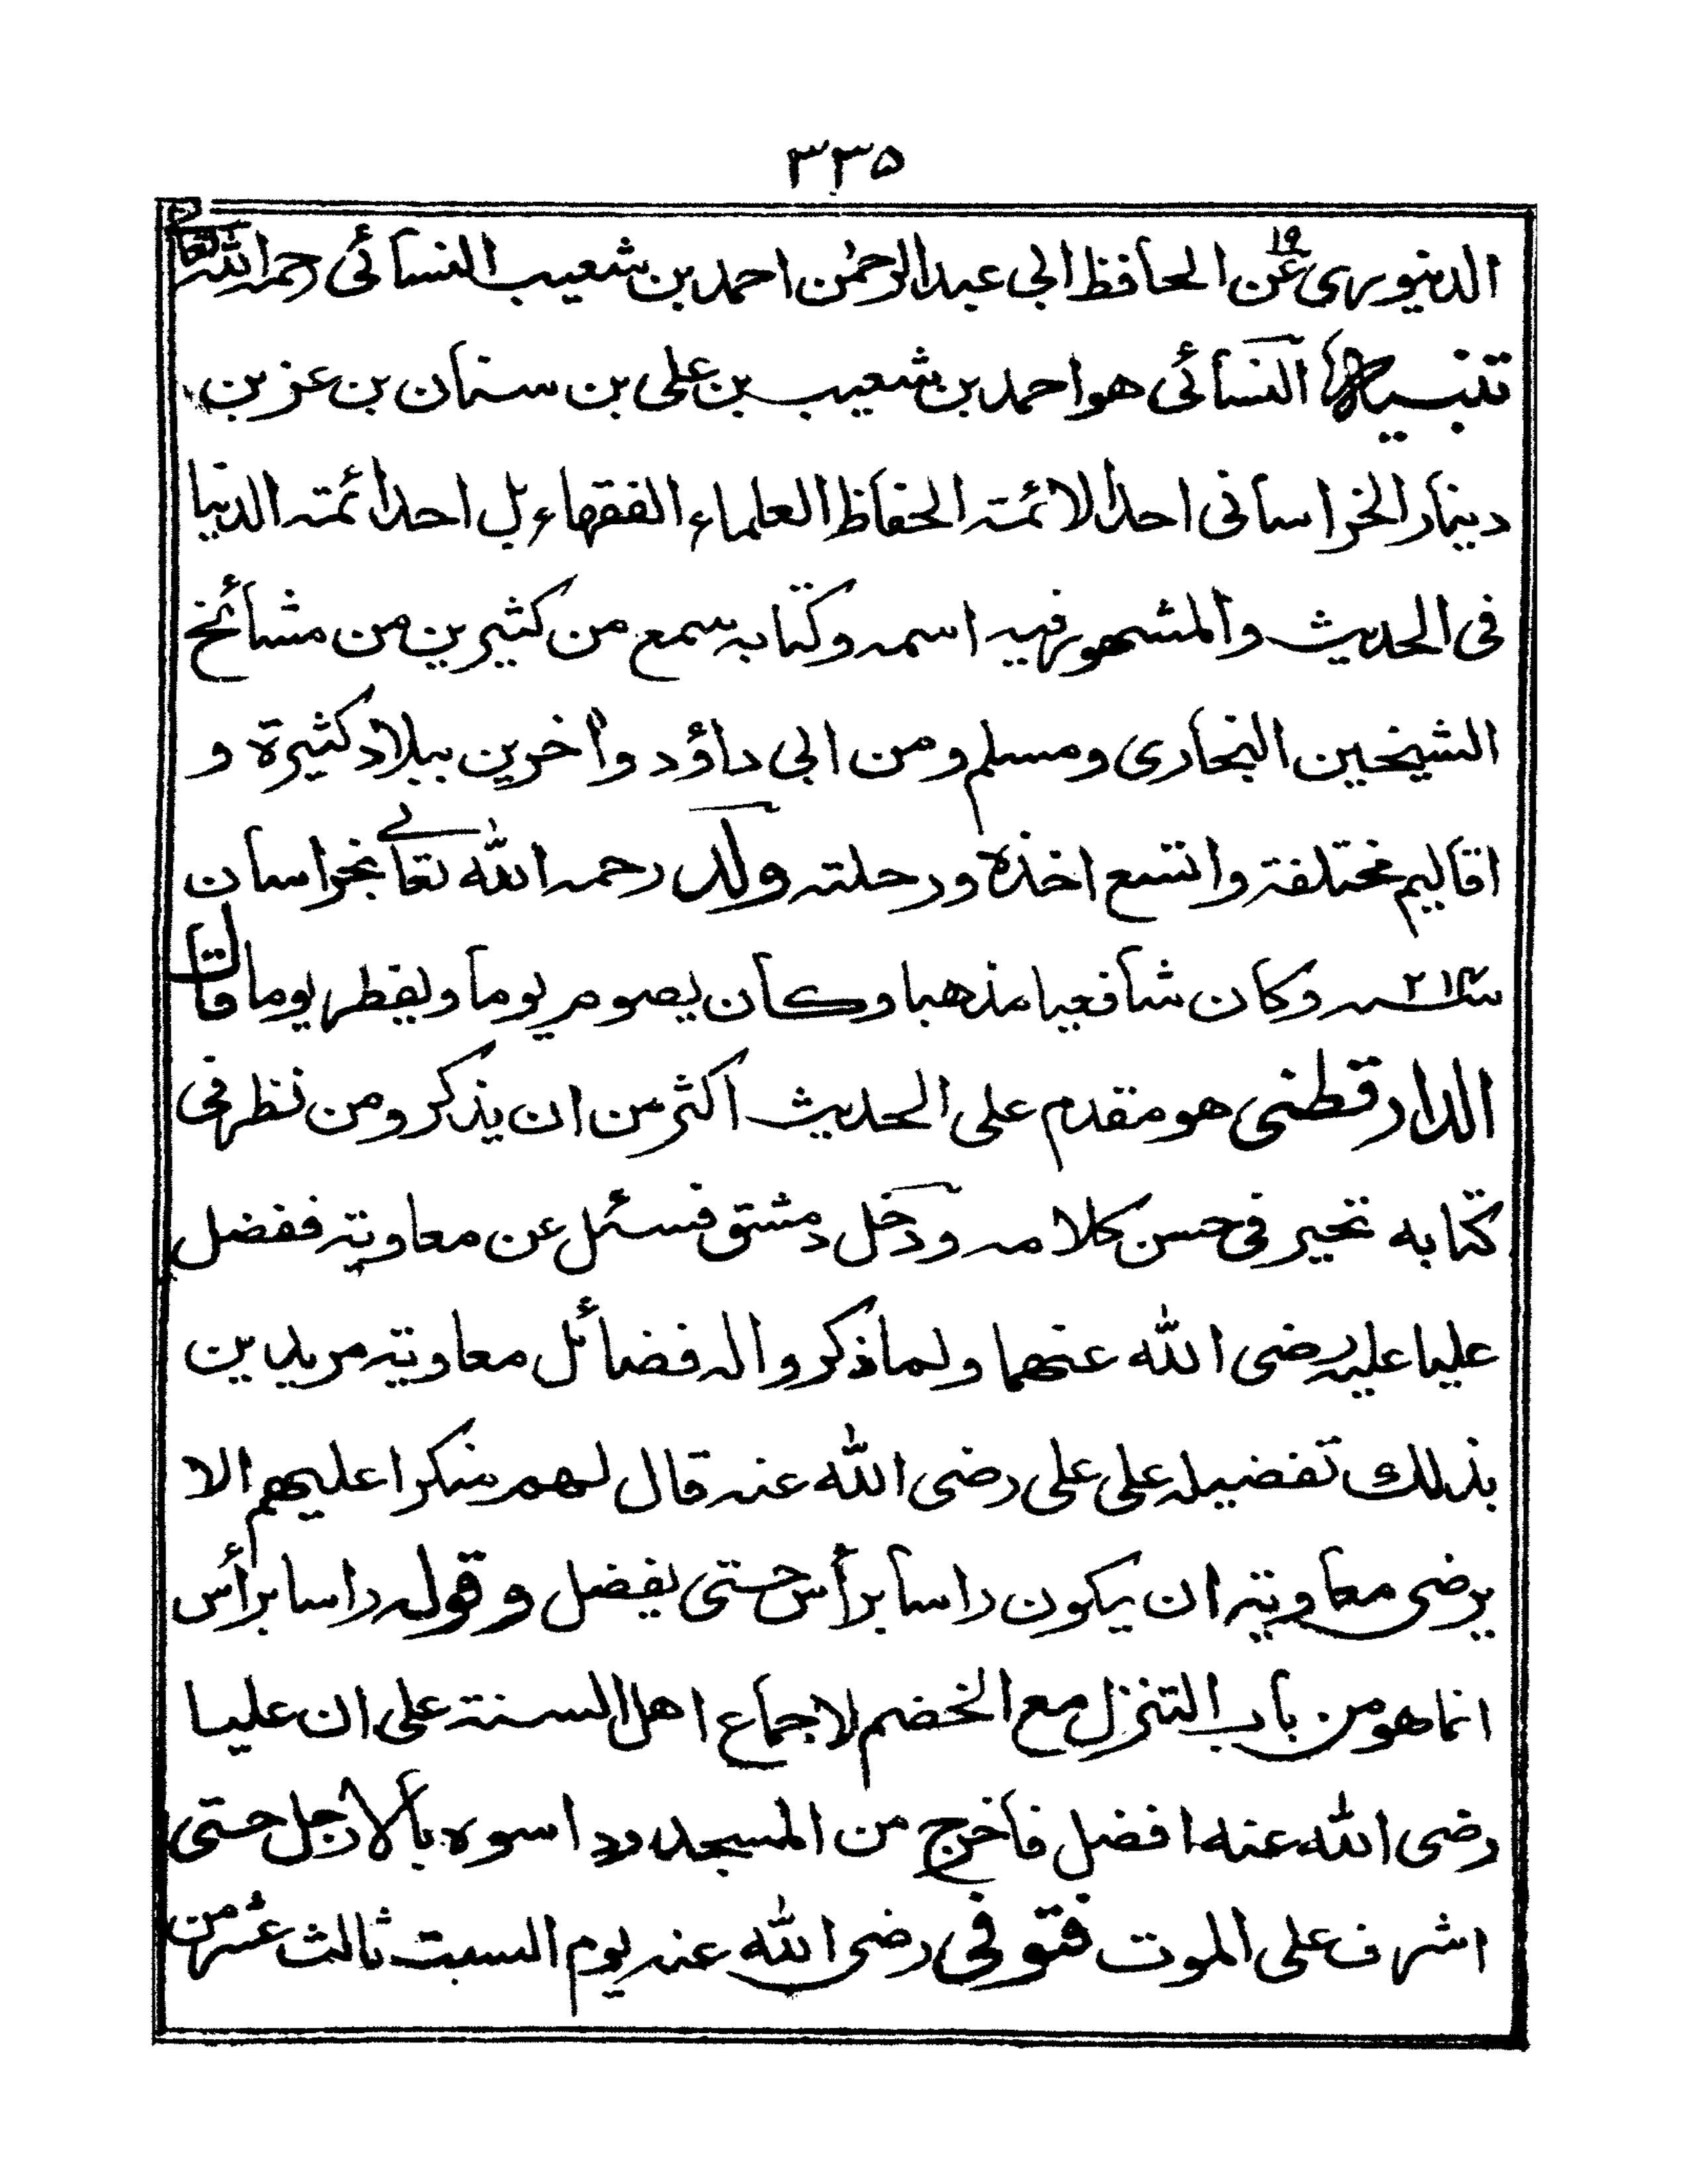 ٣٣٥
الدينوري عن ١٩ الحافظ ابي عبدالرحمٰن احمد بن شعيب النسائي رحمه الله تعالى
تنبيه النسائي هو احمد بن شعيب بن علي بن سنان بن عز بن
دينار الخراساني احد الائمة الحفاظ العلماء الفقهاء بل احد ائمة الدنيا
في الحديث والمشهور فيه اسمه وكتابه سمع من كثيرين من مشائخ
الشيخين البخاري ومسلم ومن ابي داؤد واخرين ببلاد كثيرة و
اقاليم مختلفة واتسع اخذه ورحلته ولد رحمه الله تعالے بخراسان
سنة ٢١٤ وكان شافعيا مذهبا وكان يصوم يوما ويفطر يوما قال
الدارقطني هو مقدم على الحديث اكثر من ان يذكر ومن نظر في
كتابه تحير في حسن كلامه ودخل دمشق فسئل عن معاوية ففضل
عليا عليه رضي الله عنهما ولما ذكروا له فضائل معاوية مريدين
بذلك تفضيله على علي رضي الله عنه قال لهم منكرا عليهم الا
يرضى معاوية ان يكون راسا برأس حتى يفضل وقوله راسا برأس
انما هو من باب التنزل مع الخضم لاجماع اهل السنة على ان عليا
رضي الله عنه افضل فأخرج من المسجد وداسوه بالارجل حتى
اشرف على الموت فتوفي رضي الله عنه يوم السبت ثالث عشر من